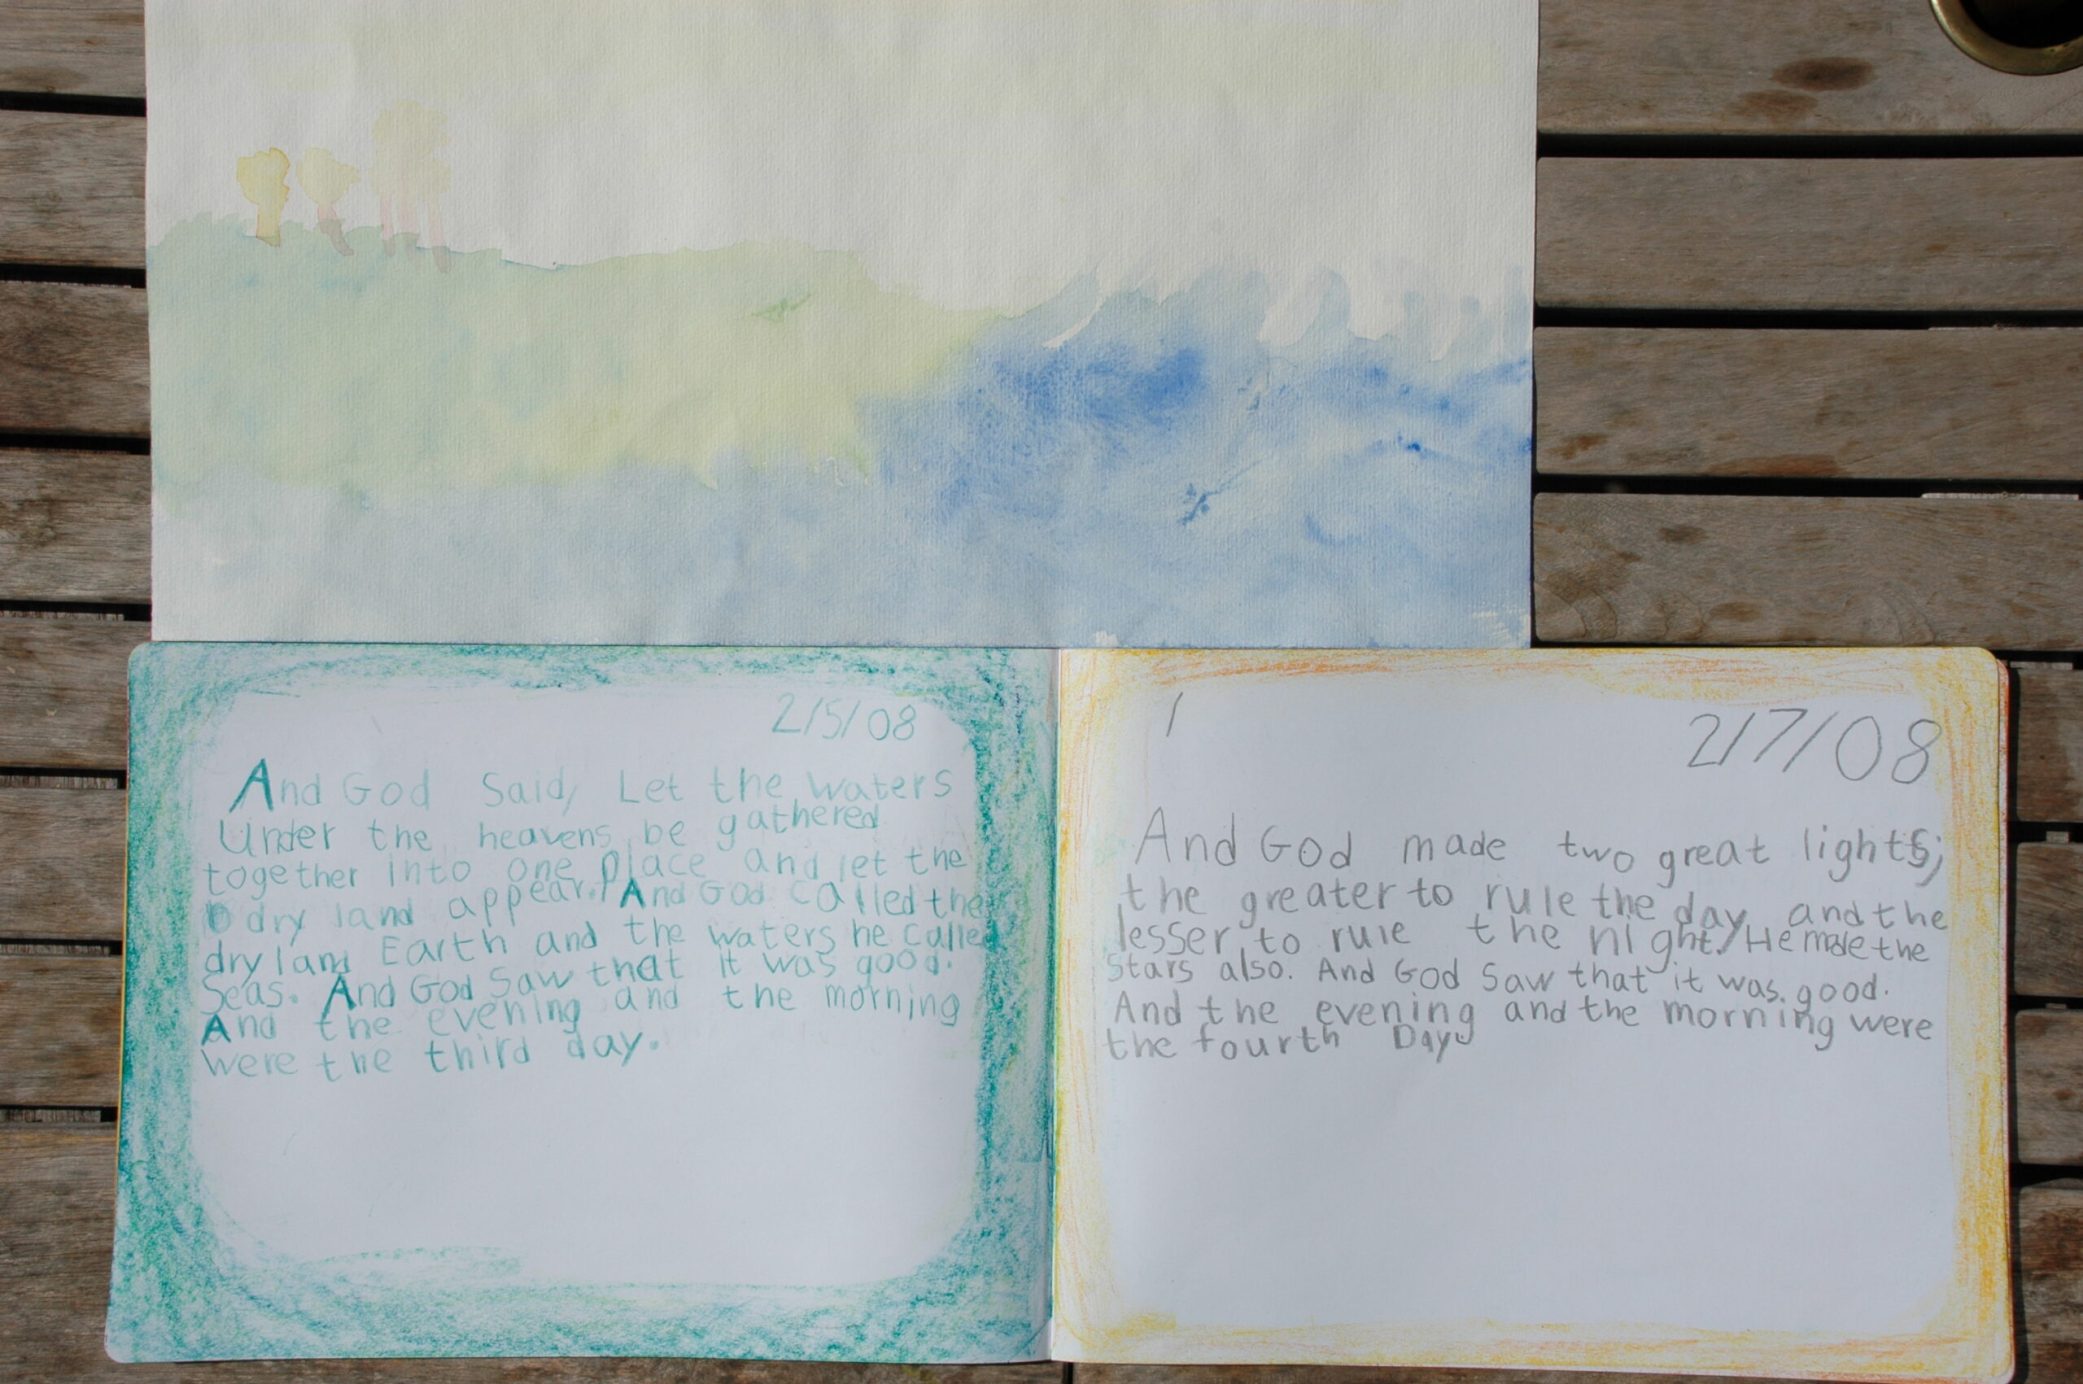 2/5/08
And God Said, Let the waters
Under the heavens be gathered
together into one place and let the
dry land appear. And God called the
dry land Earth and the waters he called
Seas. And God Saw that it was good.
And the evening and the morning
were the third day.
2/7/08
And God made two great lights;
the greater to rule the day, and the
lesser to rule the night. He made the
Stars also. And God Saw that it was good.
And the evening and the morning were
the fourth Day